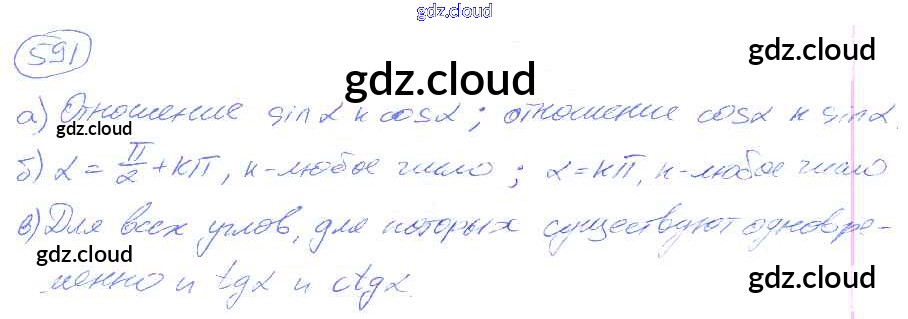 gdz.cloud
591
gdz.cloud
gdz.cloud
а) Отношение sinα к cosα; отношение cosα к sinα.
gdz.cloud
gdz.cloud
б) α = π/2 + кπ, к-любое число; α = кπ, к-любое число
в) Для всех углов, для которых существуют одновре-
gdz.cloud
gdz.cloud
менно и tgα и ctgα.